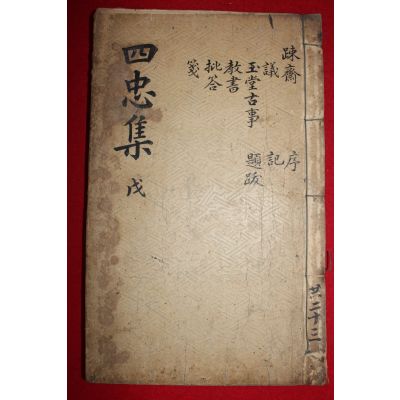 四忠集 戊
踈齋 序
議 記
玉堂古事 題跋
教書
批答
箋
共二十三